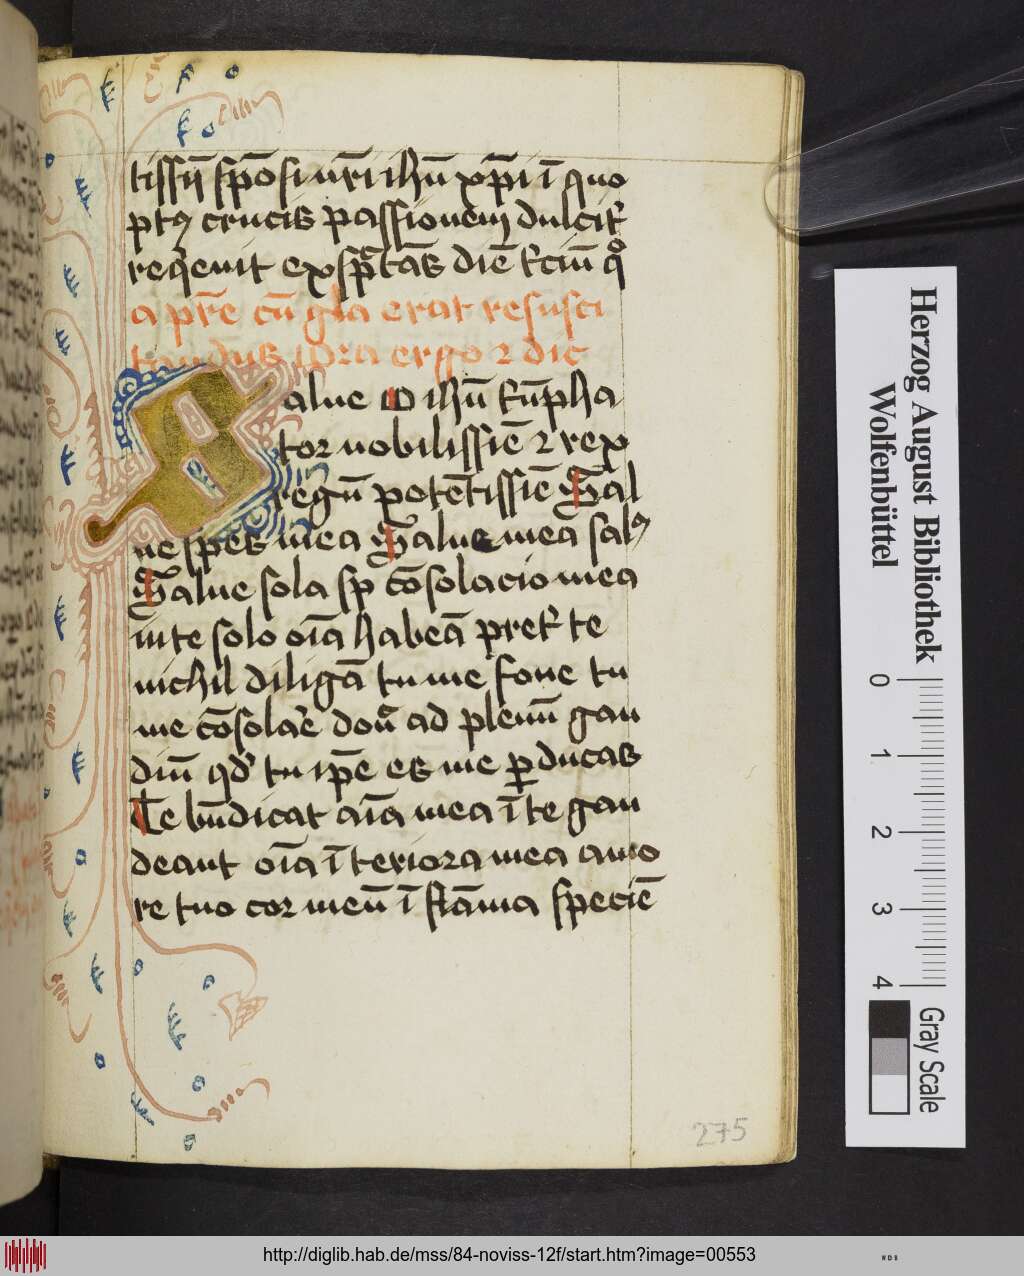 tissi͞j sp͞osi n͞ri ih͞u xp͞i ī quo
pꝰt crucis passionem dulcit᷑
req͛euit exsp͞cta͞s die͞ t᷑ciu͞ qͦ
a pr͞e cu͞ gl͞a erat resusci
tandus ora ergo ⁊ dic
Salue o ih͞u t᷑u͞pha
tor nobilissi͞e ⁊ rex
regu͞ pote͞tissi͞e Sal
ue spes mea Salue mea salꝰ
Salue sola sp͞ co͞solacio mea
in te solo oi͞a habea͞ pret᷑ te
nichil diliga͞ tu me foue tu
me co͞solare don͛ ad plenu͞ gau
diu͞ qd᷑ tu ip͞e es me ꝑducas
Te bn͞dicat ai͞a mea ī te gau
deant oi͞a īteriora mea amo
re tuo cor meu͞ ī fla͞ma specie͞
275
Herzog August Bibliothek
Wolfenbüttel
0 1 2 3 4
Gray Scale
http://diglib.hab.de/mss/84-noviss-12f/start.htm?image=00553